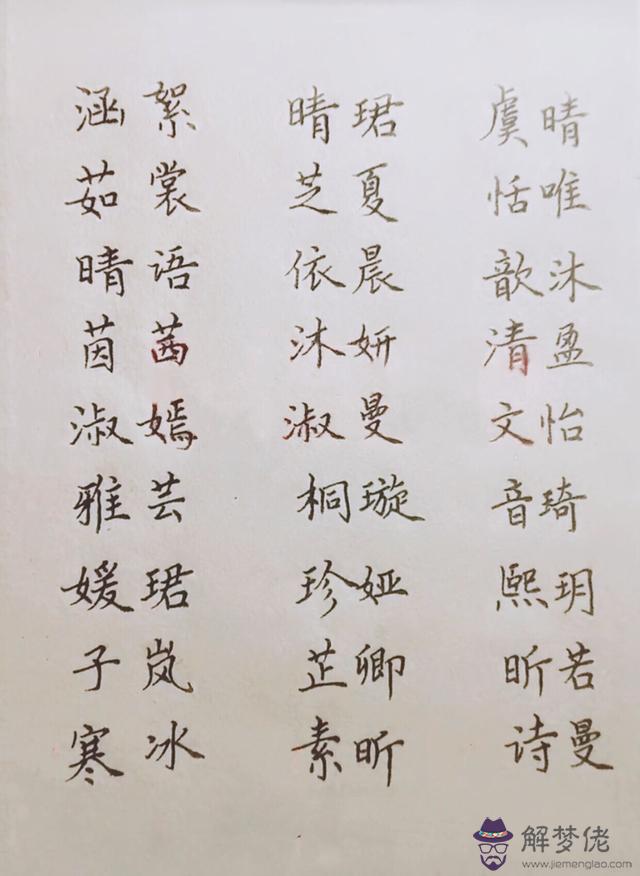 涵絮 晴珺 虞晴
茹裳 芝夏 恬唯
晴语 依晨 歆沐
茵茜 沐妍 清盈
淑嫣 淑曼 文怡
雅芸 桐璇 音琦
媛珺 珍娅 熙玥
子岚 芷卿 昕若
寒冰 素昕 诗曼
解梦佬
www.jiemenglao.com